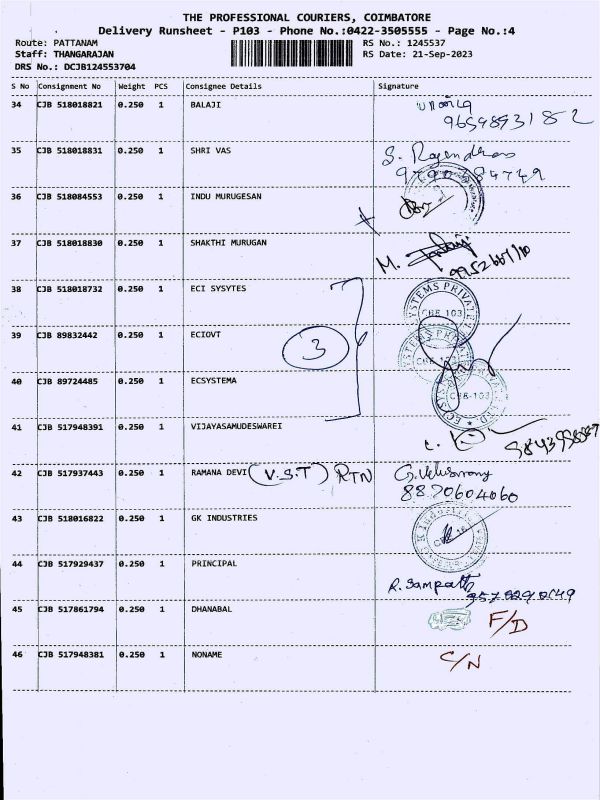 THE PROFESSIONAL COURIERS, COIMBATORE
Delivery Runsheet - P103 - Phone No.:0422-3505555 - Page No.:4
Route: PATTANAM RS No.: 1245537
Staff: THANGARAJAN RS Date: 21-Sep-2023
DRS No.: DCJB124553704
S No Consignment No Weight PCS Consignee Details Signature
34 CJB 518018821 0.250 1 BALAJI
9659893182
35 CJB 518018831 0.250 1 SHRI VAS S. Rajendran
36 CJB 518084553 0.250 1 INDU MURUGESAN
37 CJB 518018830 0.250 1 SHAKTHI MURUGAN M.
38 CJB 518018732 0.250 1 ECI SYSYTES SYSTEMS PRIVATE
CBE-103
39 CJB 89832442 0.250 1 ECIOVT 3
40 CJB 89724485 0.250 1 ECSYSTEMA CBE-103
41 CJB 517948391 0.250 1 VIJAYASAMUDESWAREI
42 CJB 517937443 0.250 1 RAMANA DEVI (V.S.T) RTN G. Velusamy
8870604060
43 CJB 518016822 0.250 1 GK INDUSTRIES
44 CJB 517929437 0.250 1 PRINCIPAL R. Sampath
45 CJB 517861794 0.250 1 DHANABAL F/D
46 CJB 517948381 0.250 1 NONAME C/N